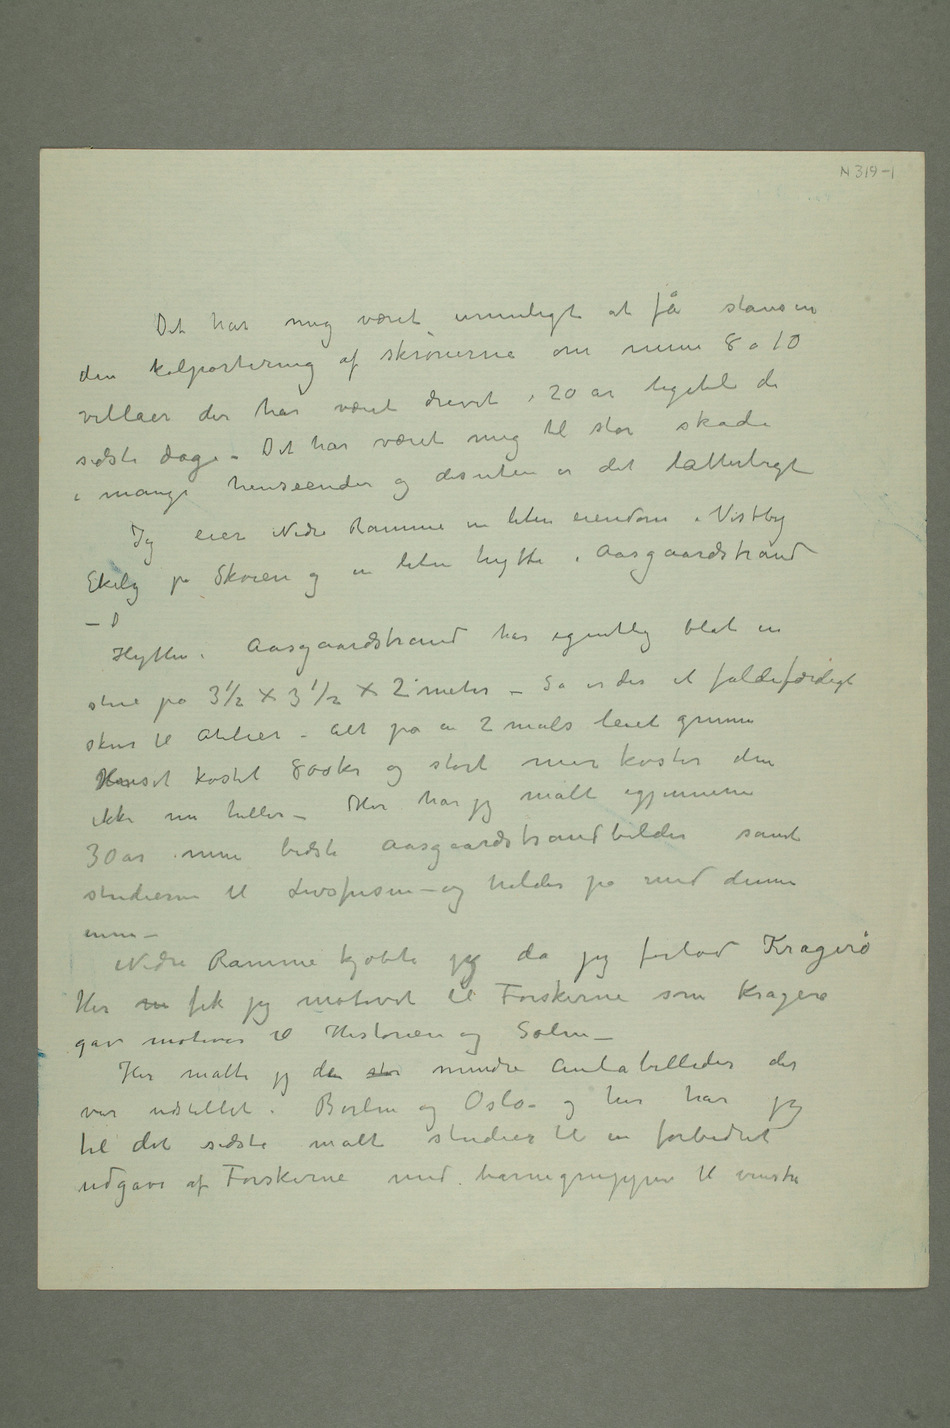 N 319-1
Det har mig været umuligt at få stanset
den kolportering af skrønerne om mine 8 a 10
villaer der har været drevet i 20 år ligetil de
sidste dage – Det har været mig til stor skade
i mange henseender og desuten er det latterligt
Jeg eier Nedre Ramme en liten eiendom i Vestby
Ekely på Skøien og en liten hytte i Aasgaardstrand
–
Hytten i Aasgaardstrand har egentlig blot en
stue på 3½ × 3½ × 2 meter – Så er der et faldefærdigt
skur til Atelier – Alt på en 2 mals leiet grunn
Huset kostet 800 kr og stort mer koster den
ikke nu heller – Her har jeg malt igjennem
30 år mine bedste Aasgaardstrandbilder samt
studierne til Livsfrisen – og holder på med denne
ennu –
Nedre Ramme kjøbte jeg da jeg forlod Kragerø
Her fik jeg motivet til Forskerne som Kragerø
gav motiver til Historien og Solen –
Her malte jeg de stor mindre Aulabilleder der
var udstillet i Berlin og Oslo – og her har jeg
til det sidste malt studier til en forbedret
udgave af Forskerne med barnegruppen til venstre